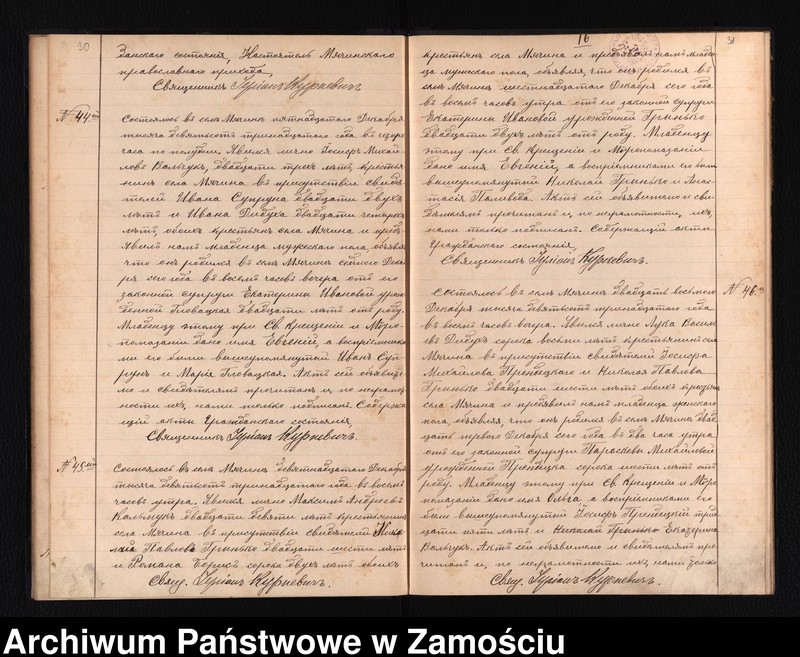 30
данскаго состоянія, Настоятель Мячинскаго
православнаго прихода,
Священникъ Іуліанъ Курневичъ.
№ 44й
Состоялось въ селѣ Мячинѣ пятнадцатаго Декабря
тысяча девятьсотъ тринадцатаго года въ
часа по полудни. Явился лично Іосифъ Михай
ловъ Вальчукъ, двадцати трехъ лѣтъ, крестья
нинъ села Мячина въ присутствіи свидѣ
телей Ивана Супруна двадцати двухъ
лѣтъ и Ивана Дидуха двадцати четырехъ
лѣтъ, обоихъ крестьянъ села Мячина и предъ
явилъ намъ младенца мужескаго пола, объявляя
что онъ родился въ селѣ Мячинѣ седьмого Декаб
ря сего года въ восемь часовъ вечера отъ его
законной супруги Екатерины Ивановой урож
денной Гловацкая двадцати лѣтъ отъ роду.
Младенцу этому при Св. Крещеніи и Мѵро-
помазаніи дано имя Евгеній, а воспріемника
ми его были вышеупомянутый Иванъ Суп
рунъ и Марія Гловацкая. Актъ сей объявите
лю и свидѣтелямъ прочитанъ и, по неграмот
ности ихъ, нами только подписанъ. Содержа
щій акты Гражданскаго состоянія,
Священникъ Іуліанъ Курневичъ.
№ 45й
Состоялось въ селѣ Мячинѣ девятнадцатаго Декабря
тысяча девятьсотъ тринадцатаго года въ восемь
часовъ утра. Явился лично Максимъ Андреевъ
Вальчукъ двадцати девяти лѣтъ крестьянинъ
села Мячина въ присутствіи свидѣтелей Нико
лая Павлова Гринько двадцати шести лѣтъ
и Романа Борисъ сорока двухъ лѣтъ обоихъ
Свящ. Іуліанъ Курневичъ.
16
31
крестьянъ села Мячина и предъявилъ намъ младен
ца мужескаго пола, объявляя, что онъ родился въ
селѣ Мячинѣ шестнадцатаго Декабря сего года
въ восемь часовъ утра отъ его законной супруги
Екатерины Ивановой урожденной Гринько
двадцати двухъ лѣтъ отъ роду. Младенцу
этому при Св. Крещеніи и Мѵропомазаніи
дано имя Евгеній, а воспріемниками его были
вышеупомянутый Николай Гринько и Анас-
тасія Паливода. Актъ сей объявителю и сви
дѣтелямъ прочитанъ и, по неграмотности, ихъ,
нами только подписанъ. Содержащій акты
Гражданскаго состоянія,
Священникъ Іуліанъ Курневичъ.
№ 46й
Состоялось въ селѣ Мячинѣ двадцать восьмого
Декабря тысяча девятьсотъ тринадцатаго года
въ восемь часовъ вечера. Явился лично Лука Василь
евъ Дидухъ сорока восьми лѣтъ крестьянинъ села
Мячина въ присутствіи свидѣтелей Іосифа
Михайлова Преницкаго и Николая Павлова
Гринько двадцати шести лѣтъ обоихъ крестьянъ
села Мячина и предъявилъ намъ младенца женскаго
пола, объявляя, что онъ родился въ селѣ Мячинѣ двад
цать перваго Декабря сего года въ два часа утра
отъ его законной супруги Параскевы Михайловой
урожденной Преницка сорока шести лѣтъ отъ
роду. Младенцу этому при Св. Крещеніи и Мѵро
помазаніи дано имя Ольга, а воспріемниками его
были вышеупомянутый Іосифъ Преницкій трид
цати пяти лѣтъ и Николай Гринько Екатерина
Вальчукъ. Актъ сей объявителю и свидѣтелямъ про
читанъ и, по неграмотности ихъ, нами только
Свящ. Іуліанъ Курневичъ.
Archiwum Państwowe w Zamościu